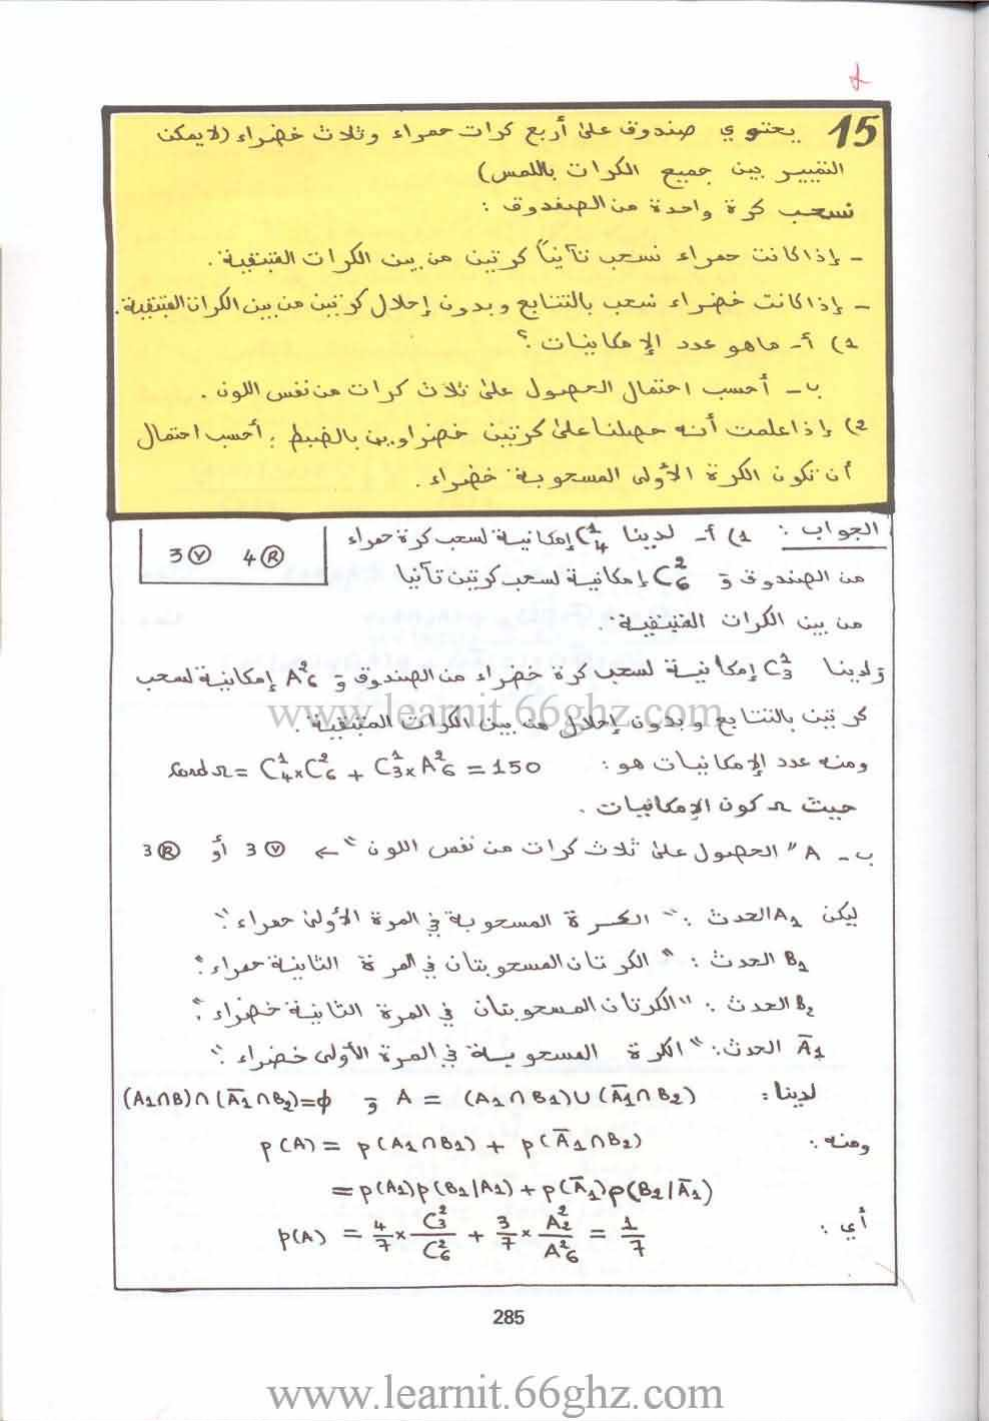 15 يحتوي صندوق على أربع كرات حمراء وثلاث خضراء (لا يمكن
التمييز بين جميع الكرات باللمس)
نسحب كرة واحدة من الصندوق :
- إذا كانت حمراء نسحب تآنياً كرتين من بين الكرات المتبقية .
- إذا كانت خضراء نسحب بالتتابع وبدون إحلال كرتين من بين الكرات المتبقية .
1) أ - ما هو عدد الإمكانيات ؟
ب - أحسب احتمال الحصول على ثلاث كرات من نفس اللون .
2) إذا علمت أنه حصلنا على كرتين خضراوين بالضبط ; أحسب احتمال
أن تكون الكرة الأولى المسحوبة خضراء .
الجواب : 1) أ - لدينا C₄¹ إمكانية لسحب كرة حمراء
3 Ⓥ 4 Ⓡ
من الصندوق و C₆² إمكانية لسحب كرتين تآنيا
من بين الكرات المتبقية .
ولدينا C₃¹ إمكانية لسحب كرة خضراء من الصندوق و A₆² إمكانية لسحب
كرتين بالتتابع وبدون إحلال من بين الكرات المتبقية .
www.learnit.66ghz.com
ومنه عدد الإمكانيات هو : card Ω = C₄¹ × C₆² + C₃¹ × A₆² = 150
حيث Ω كون الإمكانيات .
ب - A "الحصول على ثلاث كرات من نفس اللون" → 3 Ⓥ أو 3 Ⓡ
ليكن A₁ الحدث : "الكرة المسحوبة في المرة الأولى حمراء"
B₁ الحدث : "الكرتان المسحوبتان في المرة الثانية حمراء"
B₂ الحدث : "الكرتان المسحوبتان في المرة الثانية خضراء"
Ā₁ الحدث : "الكرة المسحوبة في المرة الأولى خضراء"
لدينا : A = (A₁∩B₁)∪(Ā₁∩B₂) و (A₁∩B)∩(Ā₁∩B₂)=ϕ
ومنه : p(A) = p(A₁∩B₁) + p(Ā₁∩B₂)
= p(A₁)p(B₁/A₁) + p(Ā₁)p(B₂/Ā₁)
أي : p(A) = 4/7 × C₃²/C₆² + 3/7 × A₂²/A₆² = 1/7
285
www.learnit.66ghz.com